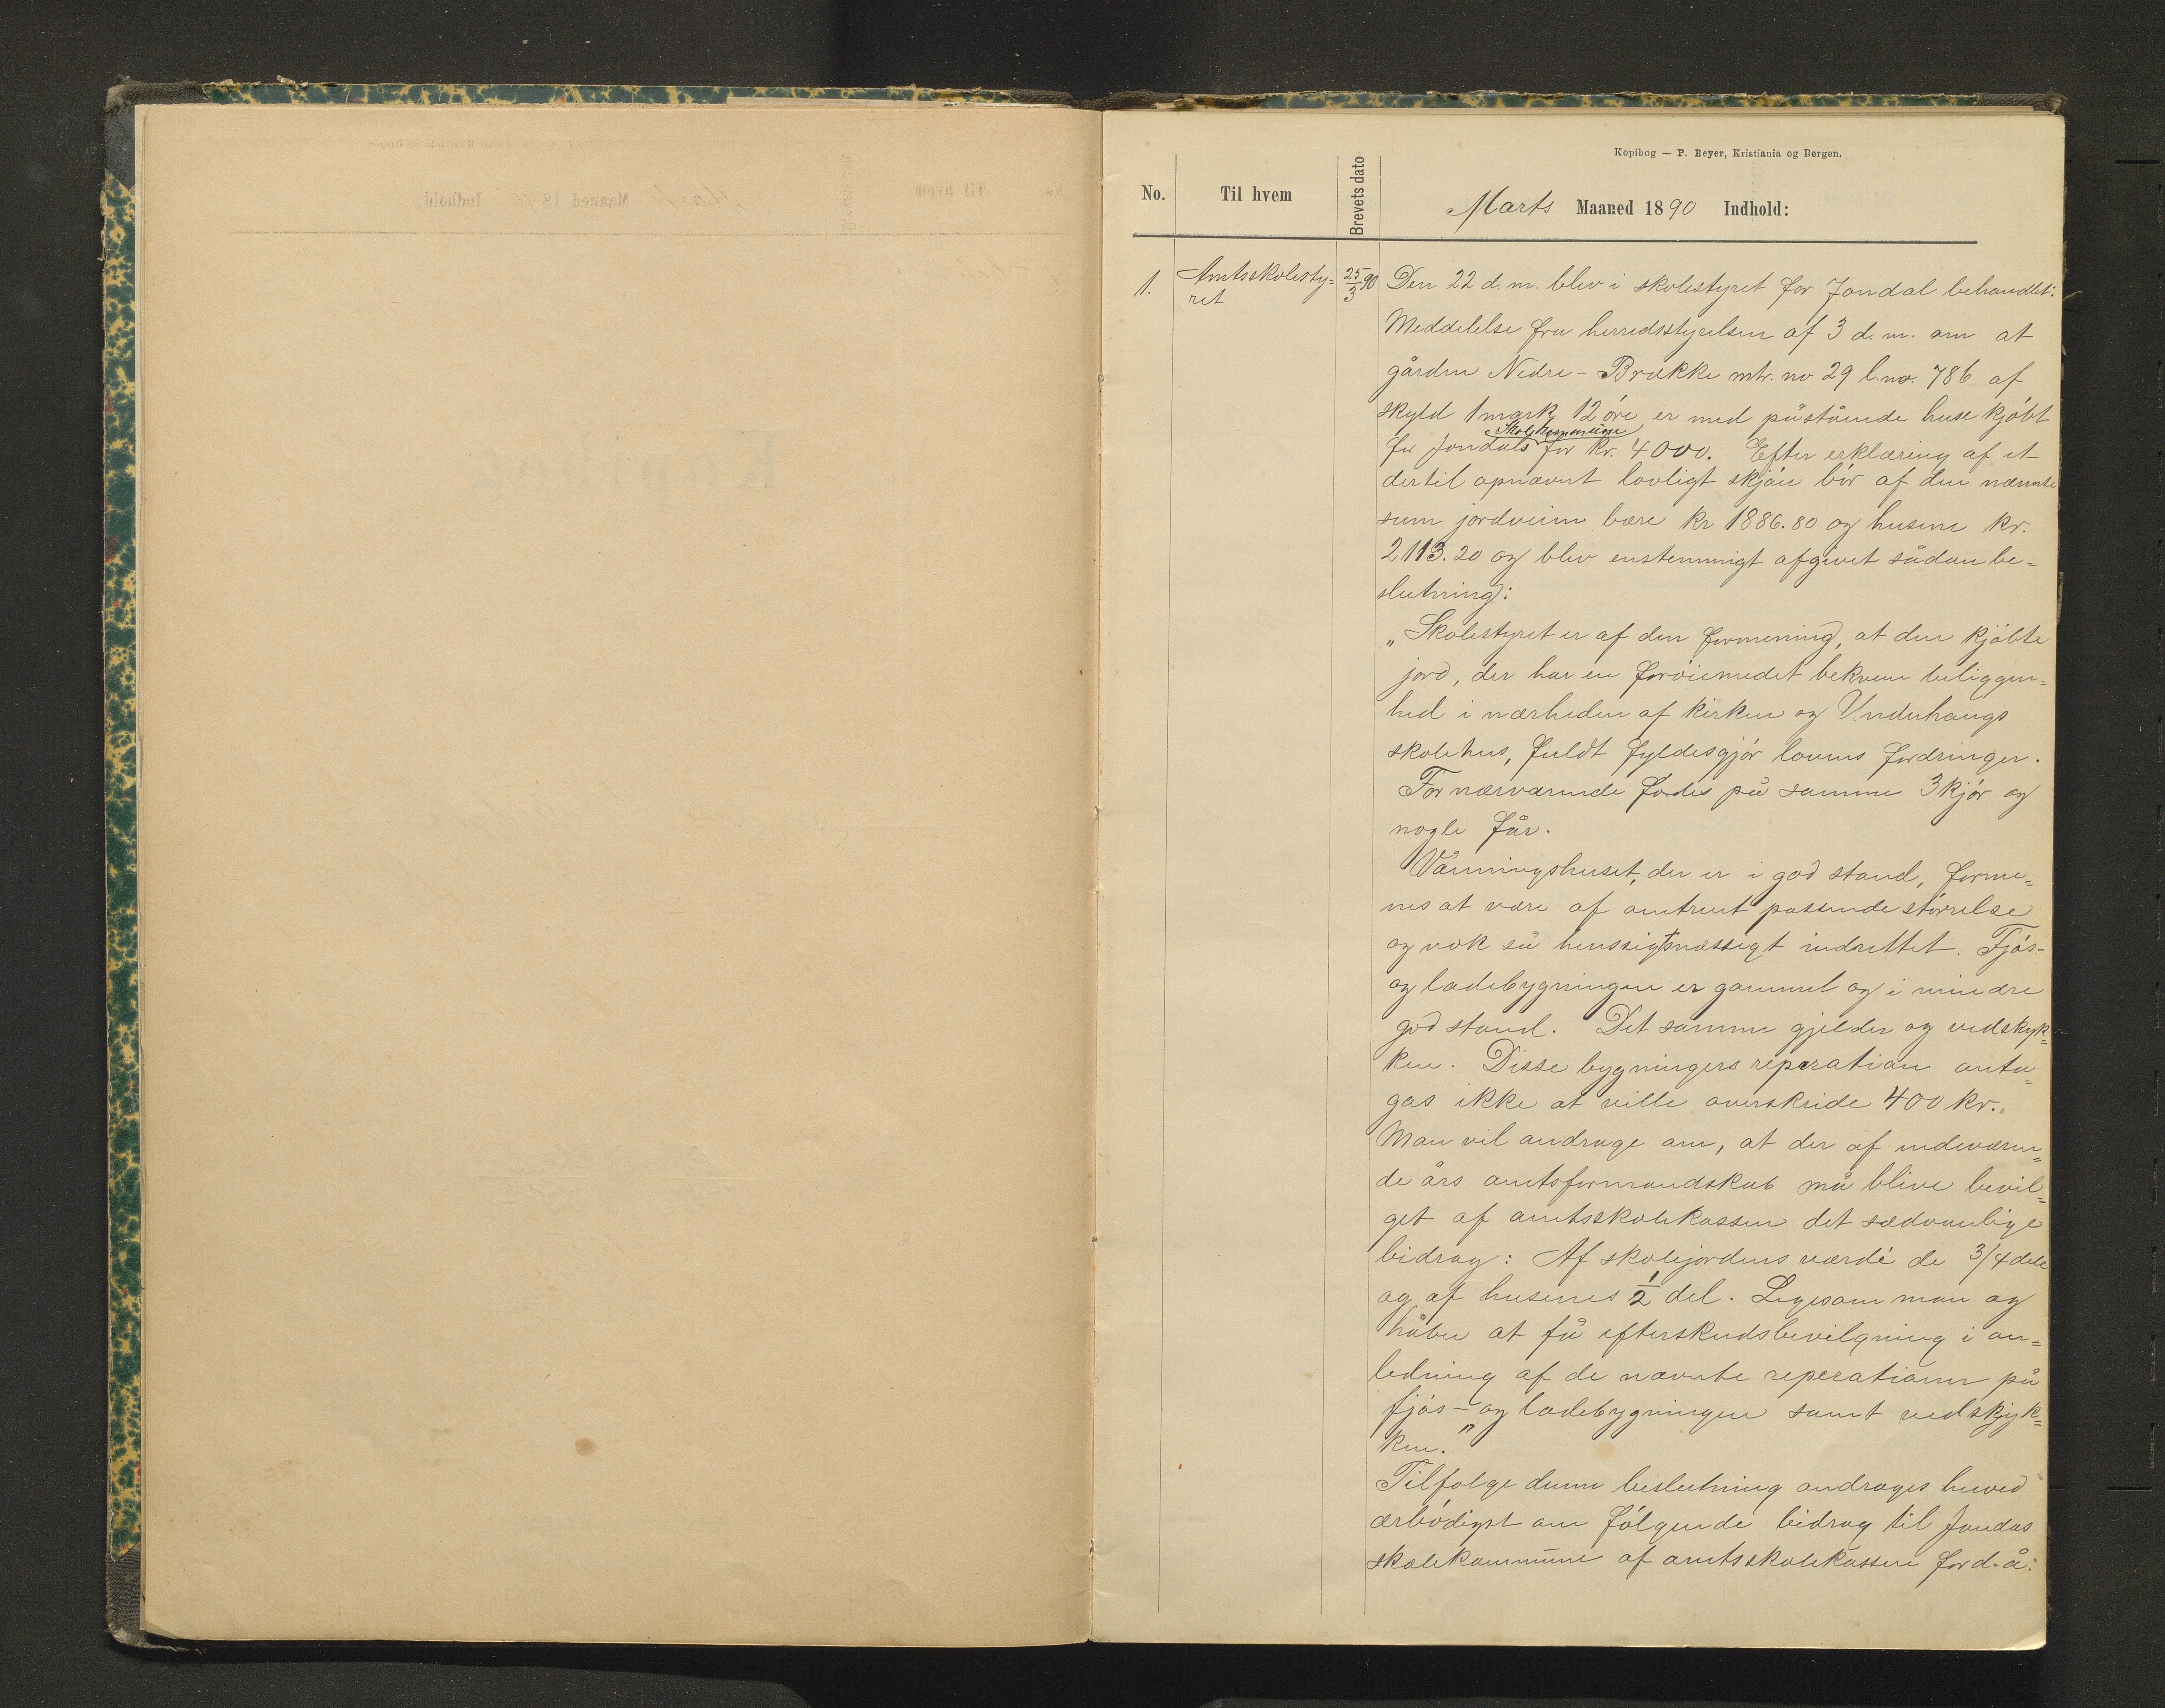 Kopibog — P. Beyer, Kristiania og Bergen.
No. Til hvem Brevets dato Marts Maaned 1890 Indhold:
1. Amtsskolesty=
ret
25/3 90
Den 22 d. m. blev i skolestyret for Jondal behandlet:
Meddelelse fra herredsstyrelsen af 3 d. m. om at
gården Nedre-Brække mtr. no 29 l. no. 786 af
skyld 1 mark 12 öre er med påstående huse kjöbt
for Jondals skolekommune for kr. 4000. Efter erklæring af et
dertil opnævnt lovligt skjön bör af den nævnte
sum jordveien bære kr 1886.80 og husene kr.
2113.20 og blev enstemmigt afgivet sådan be=
slutning:
„Skolestyret er af den formening, at den kjöbte
jord, der har en foröienredet bekvem beliggen=
hed i nærheden af kirken og Underhaugs
skolehus, fuldt fyldesgjör lovens fordringer.
For nærværende födes på samme 3 kjör og
nogle får.
Våningshuset, der er i god stand, forme=
nes at være af omtrent passende störrelse
og nok så henssigtsmæssigt indrettet. Fjös-
og ladebygningen er gammel og i mindre
god stand. Det samme gjelder og vedskyk=
ken. Disse bygningers reparation anta=
gas ikke at ville overskride 400 kr.
Man vil andrage om, at der af indeværen=
de års amtsformandskab må blive bevil=
get af amtsskolekassen det sædvanlige
bidrag: Af skolejordens værdi de 3/4 dele
og af husenes 1/2 del. Ligesom man og
håber at få efterskudsbevilgning i an=
ledning af de nævnte reperationer på
fjös- og ladebygningen samt vedskjyk=
ken."
Tilfolge denne beslutning andrages herved
ærbödigst om fölgende bidrag til Jondas
skolekommune af amtsskolekassen for d. å: